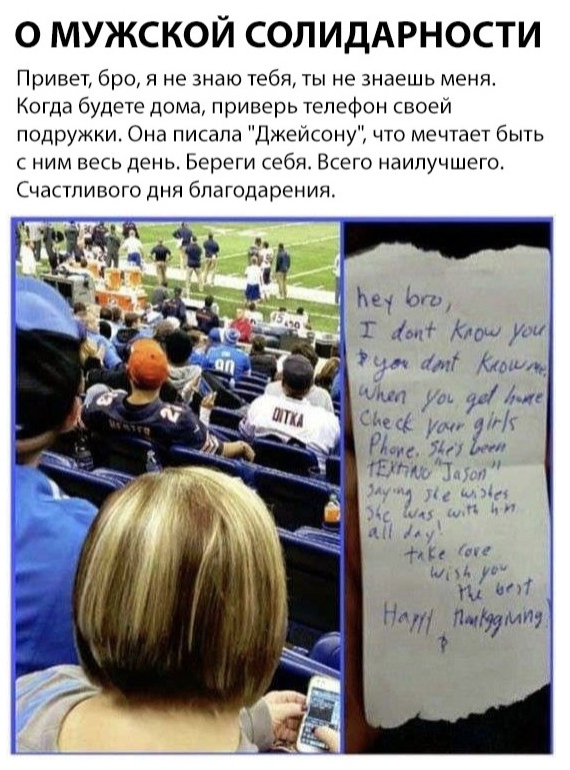 О МУЖСКОЙ СОЛИДАРНОСТИ
Привет, бро, я не знаю тебя, ты не знаешь меня.
Когда будете дома, приверь телефон своей
подружки. Она писала "Джейсону", что мечтает быть
с ним весь день. Береги себя. Всего наилучшего.
Счастливого дня благодарения.
90
HESTER
23
DITKA
hey bro,
I dont know you
& you dont know me.
when you get home
check your girls
Phone. She's been
TEXTING "Jason"
Saying she wishes
She was with him
all day!
take care
wish you
the best
Happy Thanksgiving!